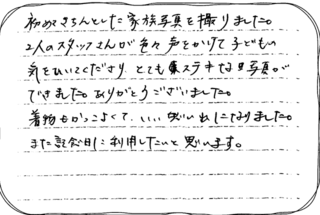 初めてきちんとした家族写真を撮りました。
2人のスタッフさんが色々声をかけて子どもの
気をひいてくださり、とてもステキな写真が
できました。ありがとうございました。
着物もかっこよくて、いい思い出になりました。
また記念日に利用したいと思います。